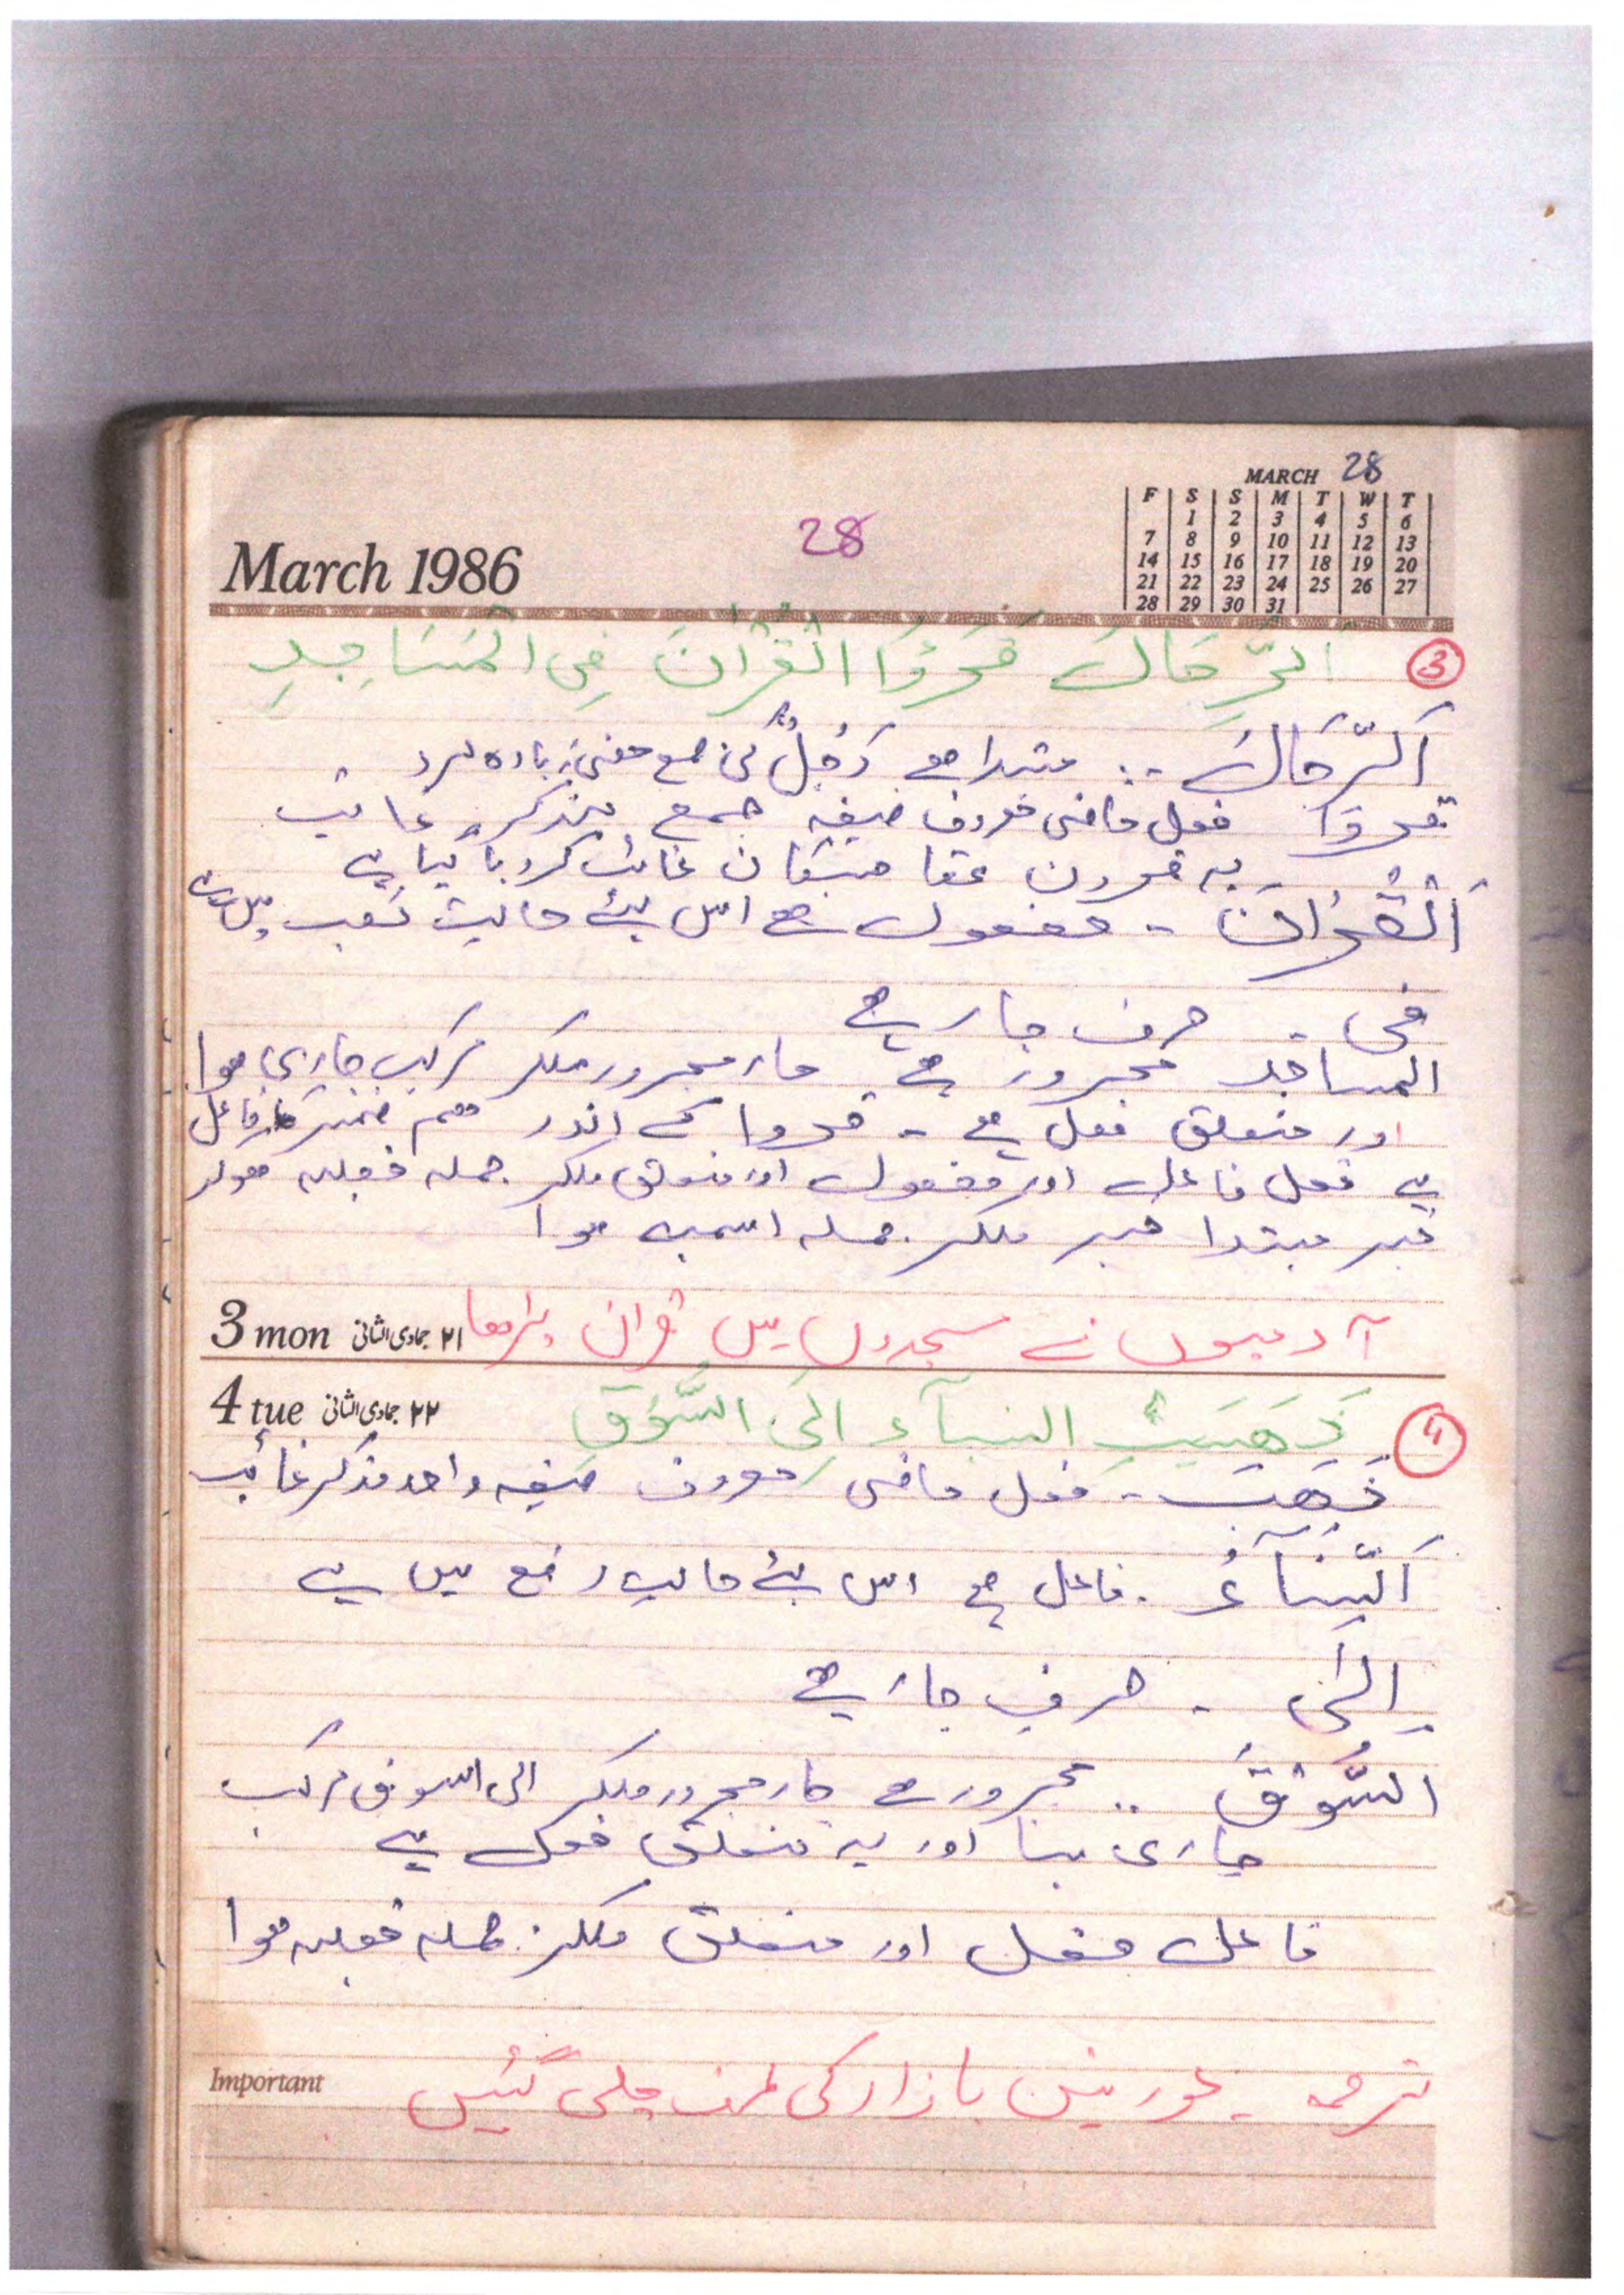 MARCH 28
F S S M T W T
1 2 3 4 5 6
7 8 9 10 11 12 13
14 15 16 17 18 19 20
21 22 23 24 25 26 27
28 29 30 31
March 1986
28
③ الرِّجَالُ قَرَؤُا الْقُرْآنَ فِی الْمَسَاجِدِ
اَلرِّجَالُ .. مبتدا ھے رَجُلٌ کی جمع معنی زیادہ مرد ۔
قروا فعل ماضی معروف صیغہ جمع مذکر غائب
یہ قرون تھا
اَلْقُرْاٰنَ - مفعول ھے اس لئے حالت نصب میں ہے
فی ۔ حرف جار ہے
المساجد مجرور ہے جار مجرور ملکر مرکب جاری ھوا
اور متعلق فعل ہے - قروا کے اندر ھم ضمیر فاعل
ہے فعل فاعل اور مفعول اور متعلق ملکر جملہ فعلیہ ھوکر
خبر مبتدا خبر ملکر جملہ اسمیہ ھوا
3 mon ۲۱ جمادی الثانی
آدمیوں نے مسجدوں میں قران پڑھا
4 tue ۲۲ جمادی الثانی
④ ذَهَبَتِ النسآء اِلَی السُّوْقِ
ذَهَبَ - فعل ماضی معروف صیغہ واحد مذکر غائب
اَلنِّسَآءُ . فاعل ھے اس لئے حالت رفع میں ہے
اِلٰی ۔ حرف جار ہے
السُّوْقِ .. مجرور ھے جار مجرور ملکر الی السوق مرکب
جاری بنا اور یہ متعلق فعل ہے
فاعل فعل اور متعلق ملکر جملہ فعلیہ ھوا
Important
ترجمہ ۔ عورتیں بازار کی طرف چلی گئیں